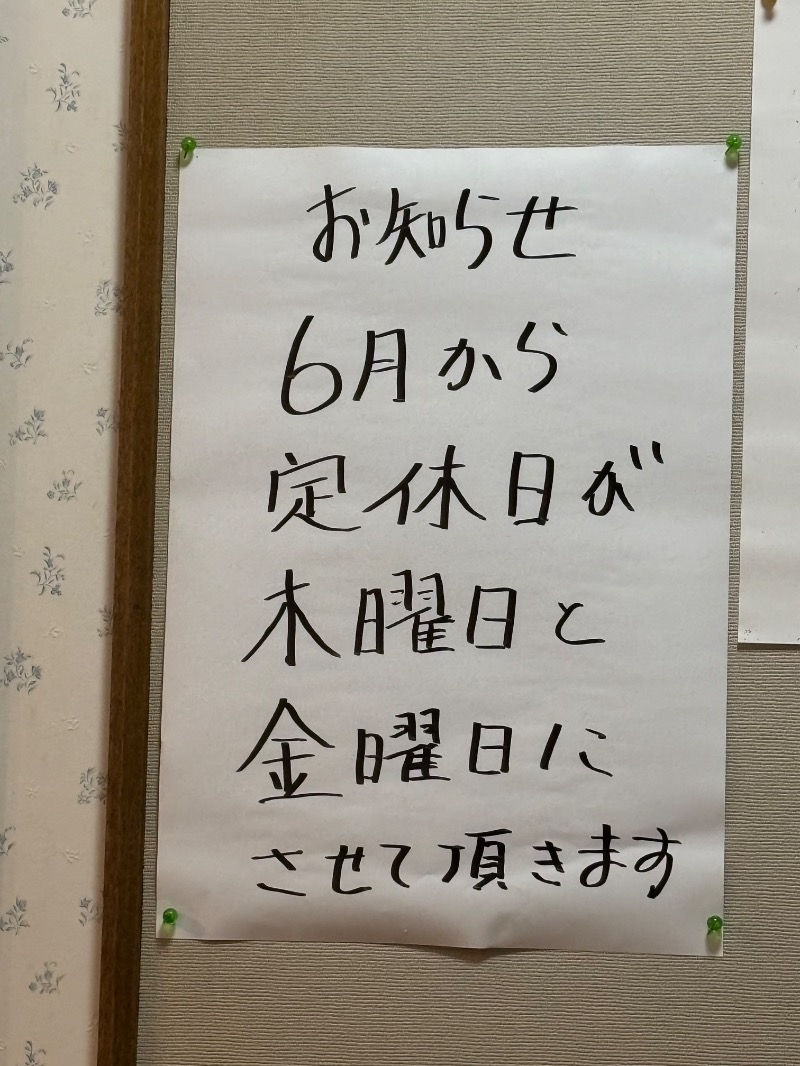 お知らせ
6月から
定休日が
木曜日と
金曜日に
させて頂きます